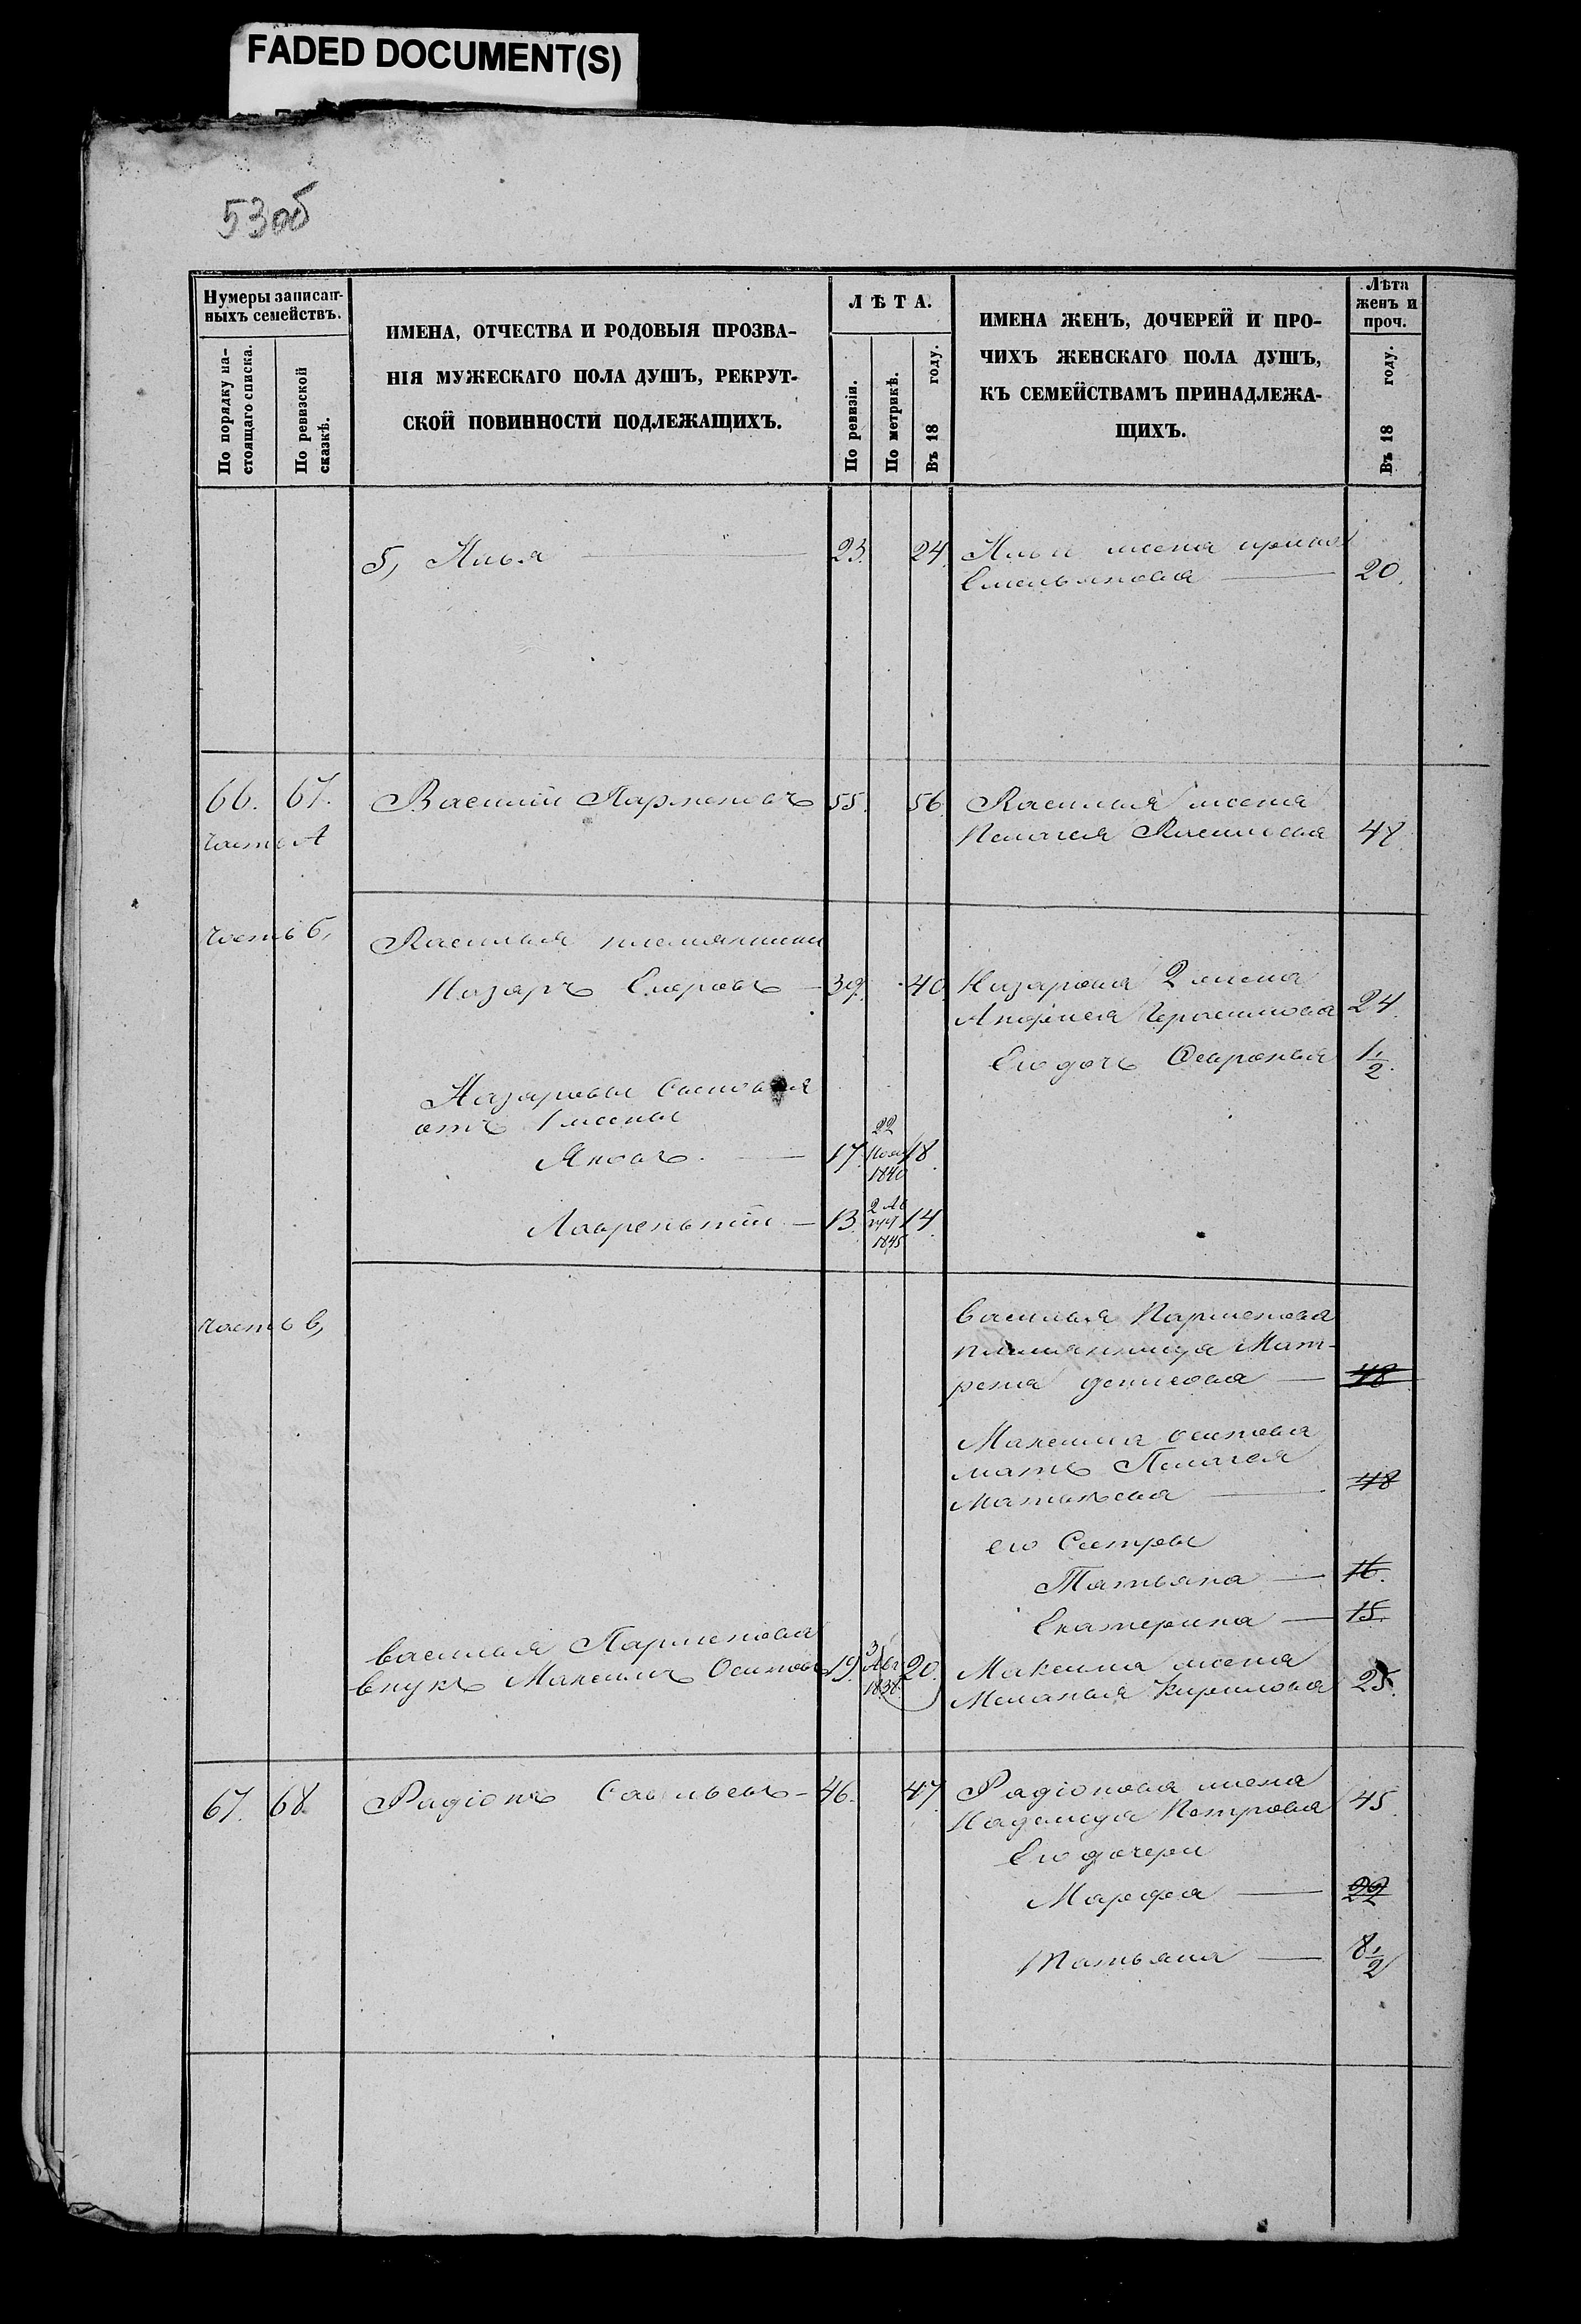 FADED DOCUMENT(S)
53об
Нумеры записан-
ныхъ семействъ.
По порядку на-
стоящаго списка.
По ревизской
сказкѣ.
ИМЕНА, ОТЧЕСТВА И РОДОВЫЯ ПРОЗВА-
НІЯ МУЖЕСКАГО ПОЛА ДУШЪ, РЕКРУТ-
СКОЙ ПОВИННОСТИ ПОДЛЕЖАЩИХЪ.
ЛѢТА.
По ревизіи.
По метрикѣ.
Въ 18 году.
ИМЕНА ЖЕНЪ, ДОЧЕРЕЙ И ПРО-
ЧИХЪ ЖЕНСКАГО ПОЛА ДУШЪ,
КЪ СЕМЕЙСТВАМЪ ПРИНАДЛЕЖА-
ЩИХЪ.
Лѣта
женъ и
проч.
Въ 18 году.
5, Илья 23. 24. Ильи жена
Емельянова 20.
66. 67. Василій Парменовъ 55. 56. Василья жена
часть А Пелагея 48.
часть б, Василья племянники
Назаръ Егоровъ 39. 40. Назарова 2 жена
Анфиса Герасимова 24.
Его дочь Февронья 1 1/2.
Назаровы Сыновья
отъ 1 жены
Яковъ. 17. 22 Ноя 1840 18.
Лаврентій 13. 2 Авгус 1845 14.
часть в, Василья Парменова
племянница Мат-
рена Денисова 48
Максима Осипова
мать Пелагея
Матвѣева 48
его Сестры
Татьяна 16.
Екатерина 15.
Василья Парменова
внукъ Максимъ Осиповъ 19. 3 Авг 1838. 20. Максима жена
Меланья Кирилова 25.
67. 68. Радіонъ Савельевъ 46. 47. Радіонова жена
Надежда Петрова 45.
Его дочери
Марфа 22
Татьяна 8 1/2